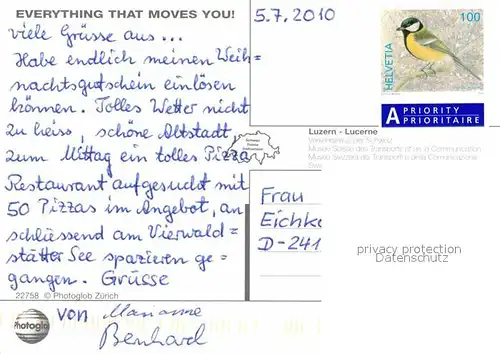 EVERYTHING THAT MOVES YOU!
viele Grüsse aus...
Habe endlich meinen Weih=
nachtsgutschein einlösen
können. Tolles Wetter nicht
zu heiss, schöne Altstadt,
zum Mittag ein tolles Pizza
Restaurant aufgesucht mit
50 Pizzas im Angebot, an
schliessend am Vierwald=
stätter See spazieren ge=
gangen. Grüsse
22758 © Photoglob Zürich
Photoglob
von Marianne
Bernhard
5.7.2010
HELVETIA
100
A PRIORITY
PRIORITAIRE
Luzern - Lucerne
Verkehrshaus der Schweiz
Musée Suisse des Transports et de la Communication
Museo Svizzero dei Trasporti e della Comunicazione
Swi
Frau
Eichko
D-241
privacy protection
Datenschutz